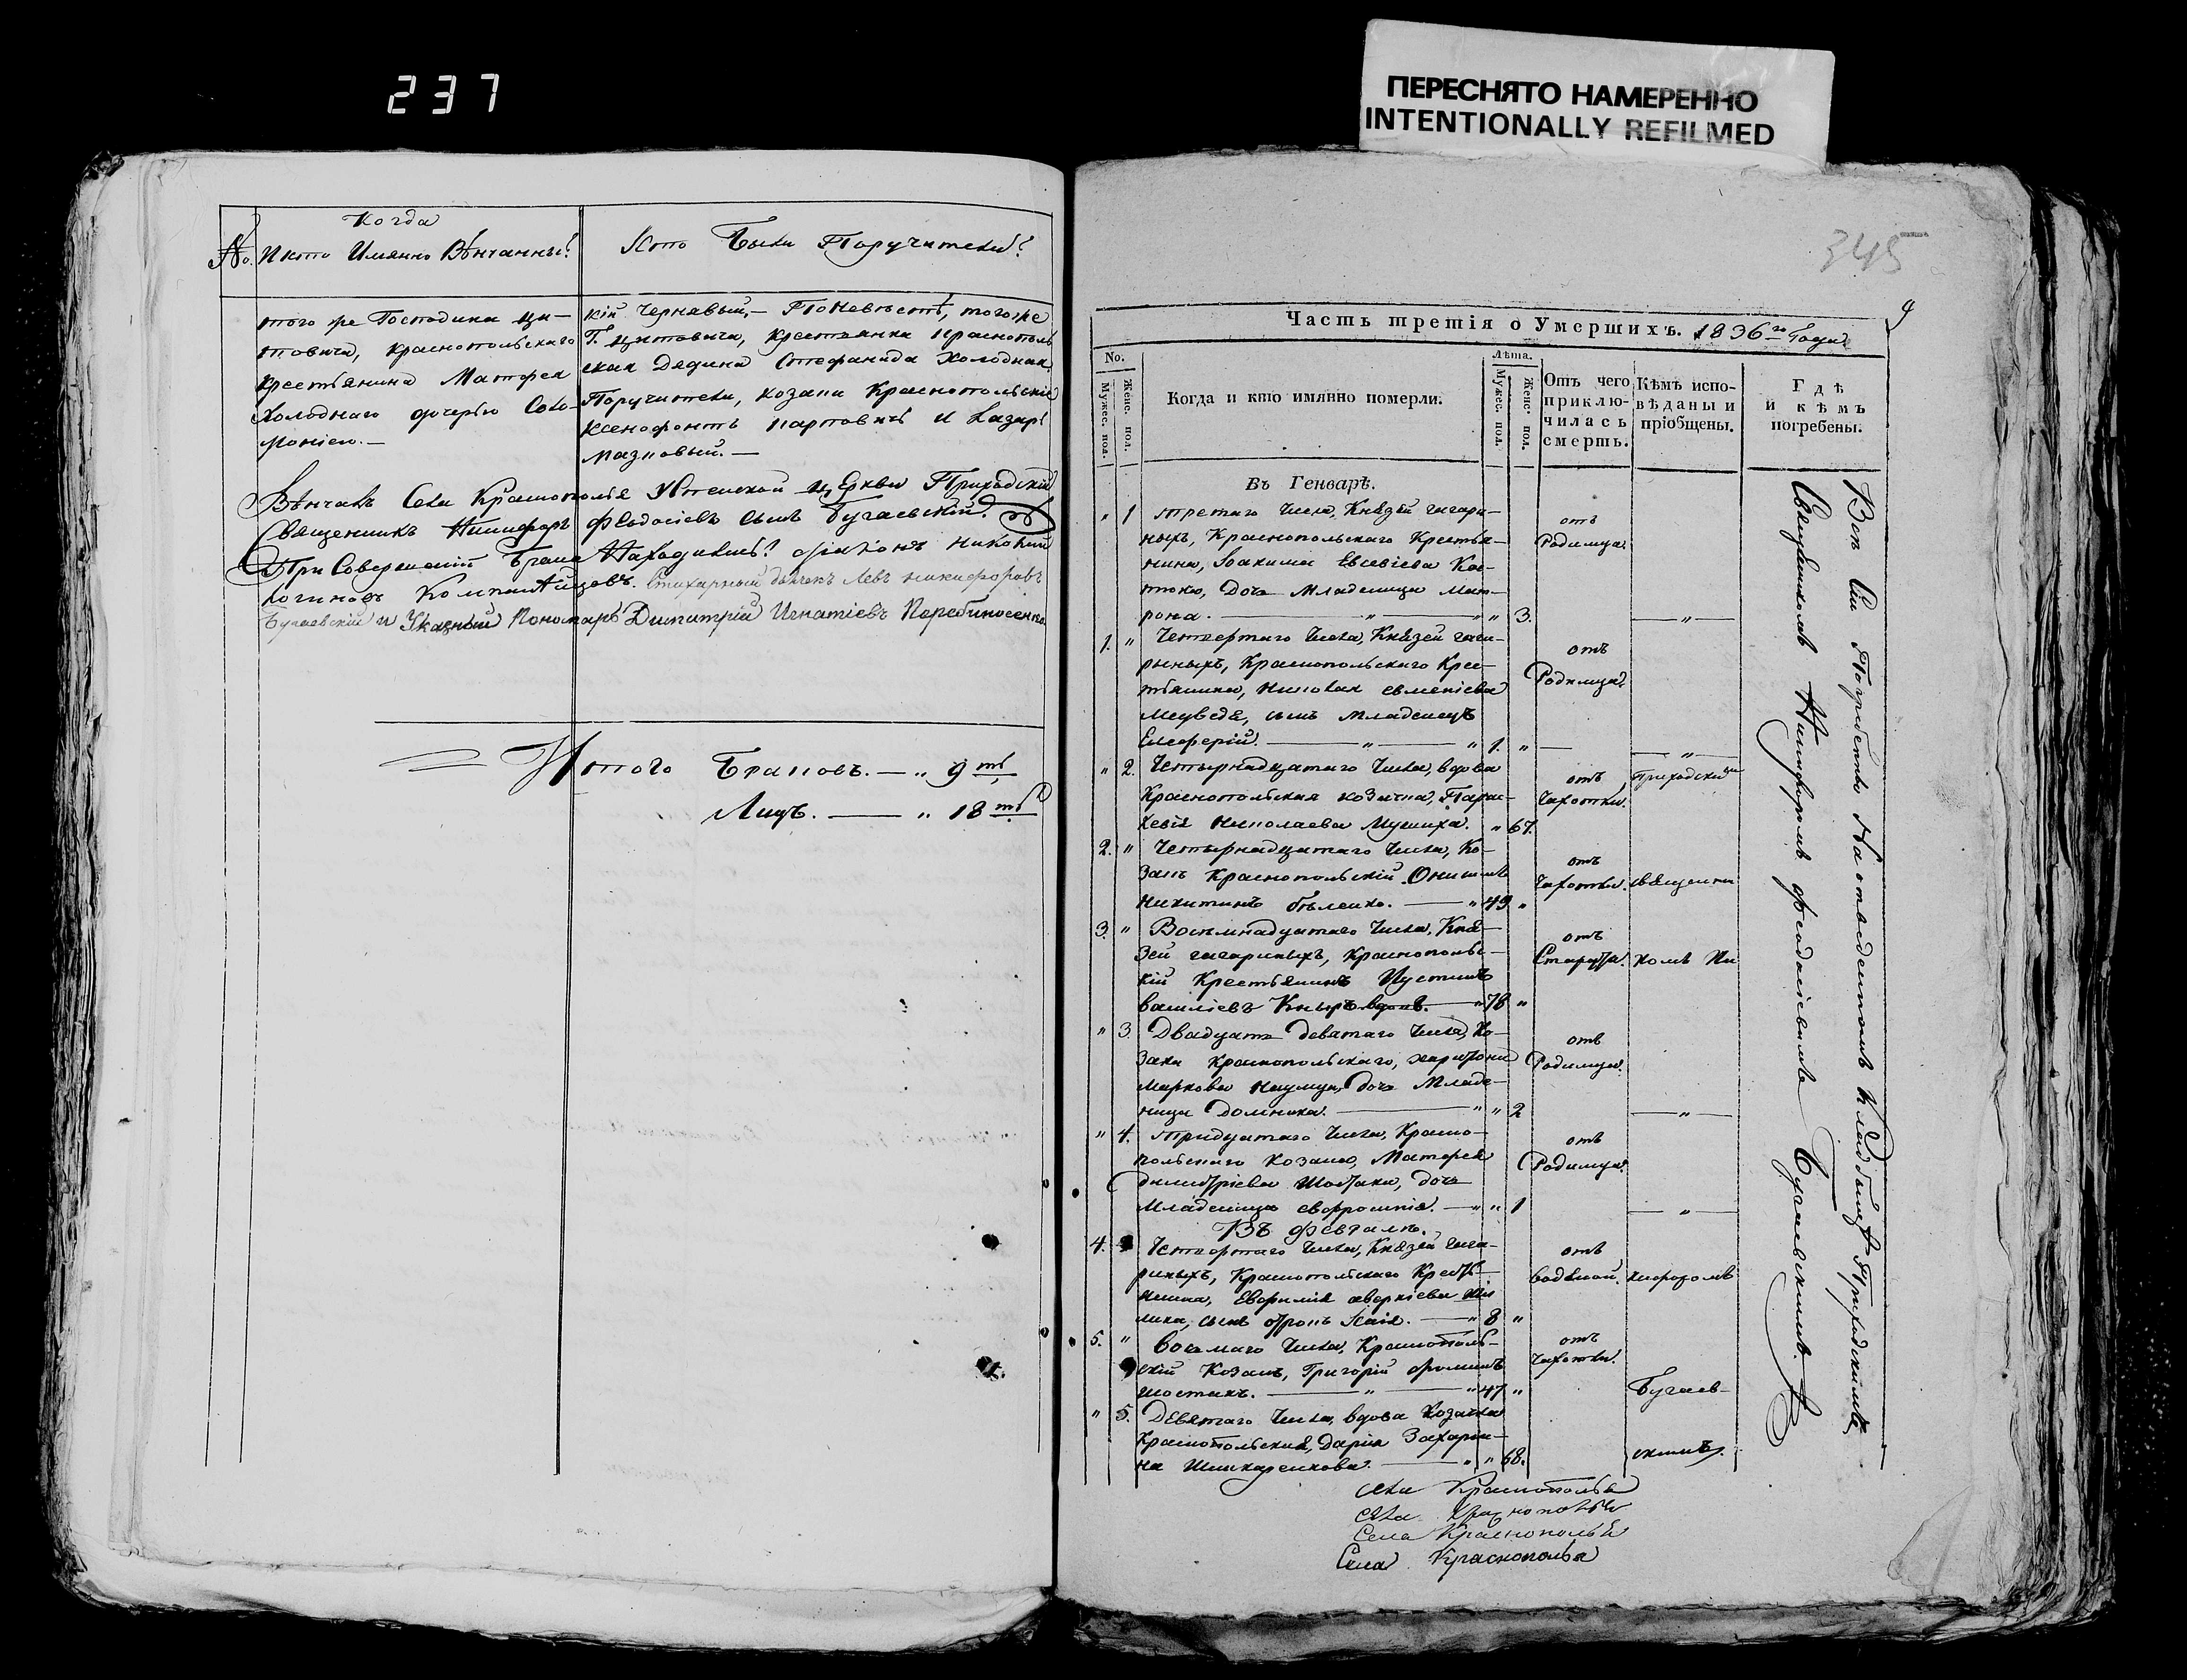 237
ПЕРЕСНЯТО НАМЕРЕННО
INTENTIONALLY REFILMED
345
Когда
№. И кто Имянно Вѣнчанны?
Кто Были Поручители?
того же Господина Ци-
товича, Краснопольскаго
крестьянина Матфея
Холоднаго дочерью Соло-
моніею.—
кій Чернявый,— По Невѣстѣ, тогоже
Г. Цитовича, крестьянки Краснополь
ская Дядина Стефанида Холодная
Поручители, козаки Краснопольскіе
Ксенофонтъ Карповичъ и Лазарь
Мазновый.—
Вѣнчалъ Села Краснополья Успенской Церкви Приходскій
Священникъ Никифоръ Феодосіевъ сынъ Бугаевскій.
При Совершеніи Брака Находились: Діаконъ
Стихарный дьячекъ Левъ Никифоровъ
Бугаевскій и Указный Пономарь Димитрій Игнатіевъ
Итого Браковъ. — „ 9ть
Лицъ. — „ 18ть
Часть третія о Умершихъ. 1836го Года
No.
Мужес. пол.
Женс. пол.
Когда и кто имянно померли.
Лѣта.
Мужес. пол.
Женс. пол.
Отъ чего
приклю-
чилась
смерть.
Кѣмъ испо-
вѣданы и
пріобщены.
Гдѣ
и кѣмъ
погребены.
Въ Генварѣ.
„ 1 Третяго Числа, Князей Гагари-
ныхъ, Краснопольскаго Крестья-
нина, Іоакима Евсевіева
дочь Младеница Мат-
рона. — „ — „ „ 3.
отъ
Родимца.
— „ —
1. „ Четвертаго Числа, Князей Гага-
рыныхъ, Краснопольскаго Крес-
тьянина, Николая
Медведя, сынъ Младенецъ
Елеферій. — „ — „ 1. „
отъ
Родимца.
— „ —
„ 2. Четырнадцатаго Числа, вдова
Краснопольская козачка, Парас-
кевія Николаева „ 67.
отъ
Чахотки.
Приходским
2. „ Четырнадцатаго Числа, Ко-
закъ Краснопольскій
Никитинъ — „ 49 „
отъ
Чахотки.
священни
3. „ Восемнадцатаго Числа, Кня-
зей Гагариныхъ, Краснопольс-
кій Крестьянинъ Иустинъ
Василіевъ — „ 78 „
отъ
Старости.
комъ Ни
„ 3. Двадцать девятаго Числа, Ко-
зака Краснопольскаго, Харитона
Маркова дочь Младе-
ница Домника. — „ „ 2
отъ
Родимца.
— „ —
„ 4. Тридцатаго Числа, Красно-
польскаго Козака, Матфея
Димитріева Шостака, дочь
Младеница Евфросинія. — „ „ 1
отъ
Родимца.
— „ —
Въ Февралѣ.
4. Четвертаго Числа, Князей Гага-
риныхъ, Краснопольскаго Кресть-
янина, Евфимія Аверкіева
сынъ отрокъ Исаія. — „ 8 „
отъ
водяной.
кифоромъ
5. „ Восьмаго Числа, Краснополь-
скій Козакъ, Григорій Фоминъ
Шостакъ. — „ — „ 47 „
отъ
Чахотки.
Бугаев-
„ 5. Девятаго Числа, вдова Козачка
Краснопольская, Дарія Захари-
на Шинкаренкова. — „ „ 68.
скимъ.
Всѣ Сіи Погребены На отведенномъ Кладбищѣ Приходскимъ
Священникомъ Никифоромъ Феодосіевымъ Бугаевскимъ.
села Краснополья
села Краснополья
Села Краснополья
Села Краснополья